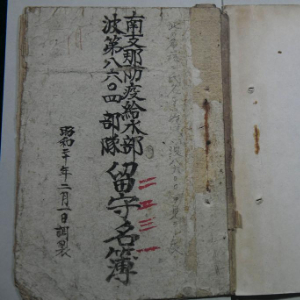 南支那防疫給水部
波第八六〇四部隊
留守名簿
二二三一
昭和二十年二月一日調製